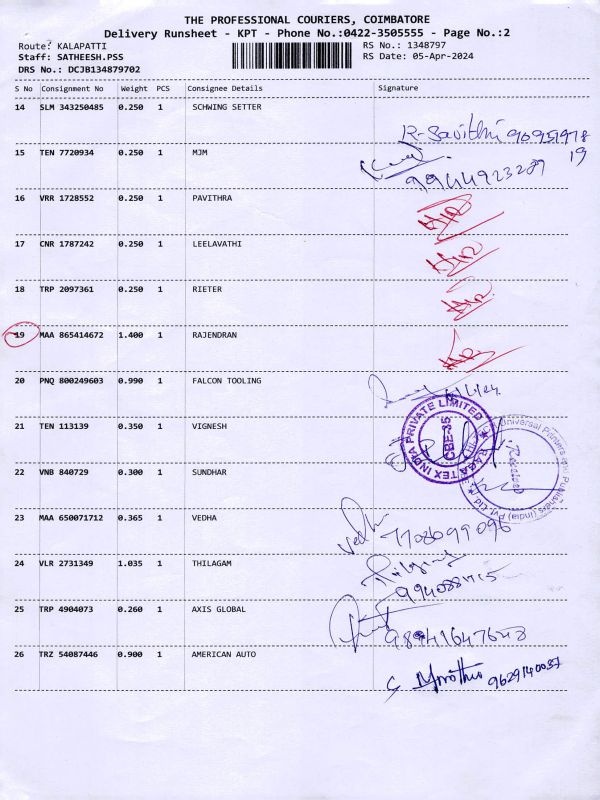 THE PROFESSIONAL COURIERS, COIMBATORE
Delivery Runsheet - KPT - Phone No.:0422-3505555 - Page No.:2
Route: KALAPATTI RS No.: 1348797
Staff: SATHEESH.PSS RS Date: 05-Apr-2024
DRS No.: DCJB134879702
S No Consignment No Weight PCS Consignee Details Signature
14 SLM 343250485 0.250 1 SCHWING SETTER
R-Savithri 90951978
19
15 TEN 7720934 0.250 1 MJM
9944923289
16 VRR 1728552 0.250 1 PAVITHRA
17 CNR 1787242 0.250 1 LEELAVATHI
18 TRP 2097361 0.250 1 RIETER
19 MAA 865414672 1.400 1 RAJENDRAN
20 PNQ 800249603 0.990 1 FALCON TOOLING
21 TEN 113139 0.350 1 VIGNESH
RAGATEX INDIA PRIVATE LIMITED
CBE-35
Universal Printers and Publishers (India) Pvt Ltd
Received
22 VNB 840729 0.300 1 SUNDHAR
23 MAA 650071712 0.365 1 VEDHA
Vedha 7708099096
24 VLR 2731349 1.035 1 THILAGAM
25 TRP 4904073 0.260 1 AXIS GLOBAL
26 TRZ 54087446 0.900 1 AMERICAN AUTO
9629140037